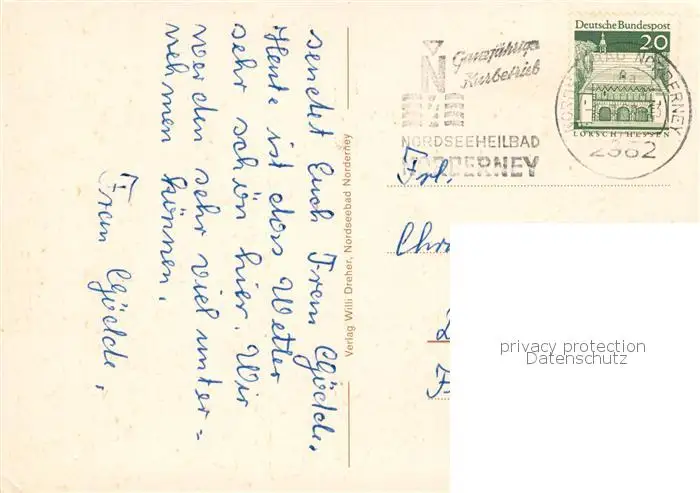 sendet Euch Frau Gödde.
Heute ist das Wetter
sehr schön hier. Wir
werden sehr viel unter=
nehmen können.
Frau Gödde.
Verlag Willi Dreher, Nordseebad Norderney
Ganzjähriger
Kurbetrieb
N
NORDSEEHEILBAD
NORDERNEY
Deutsche Bundespost
20
LORSCH/HESSEN
NORDSEEBAD NORDERNEY
2982
Frl.
Chr
privacy protection
Datenschutz